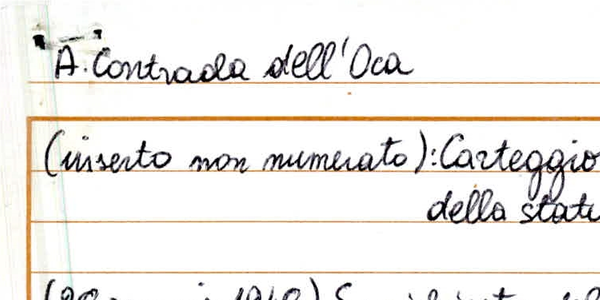 A. Contrada dell'Oca
(inserto non numerato): Carteggio
della